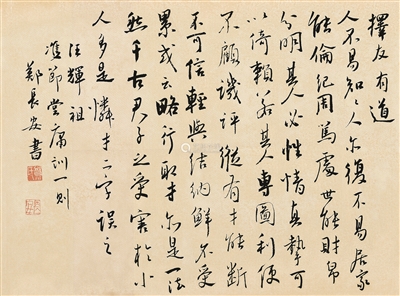 擇友有道
人不易知知人亦復不易居家
能倫紀周篤處世能財帛
分明其人必性情真摯可
以倚賴若其人專圖利便
不顧譏評縱有才能斷
不可信輕與結納鮮不受
累或云略行取才亦是一法
然千古君子之受害於小
人多是憐才二字誤之
汪輝祖
雙節堂庸訓一則
鄭長安書